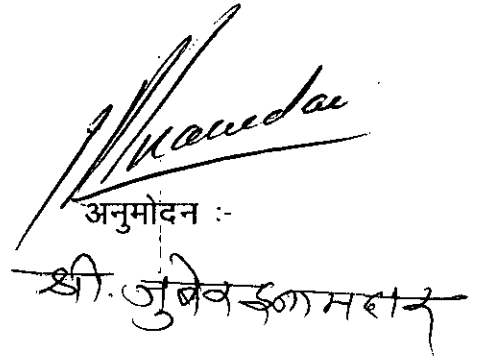 Inamdar
अनुमोदन :-
श्री. जुबेर इनामदार